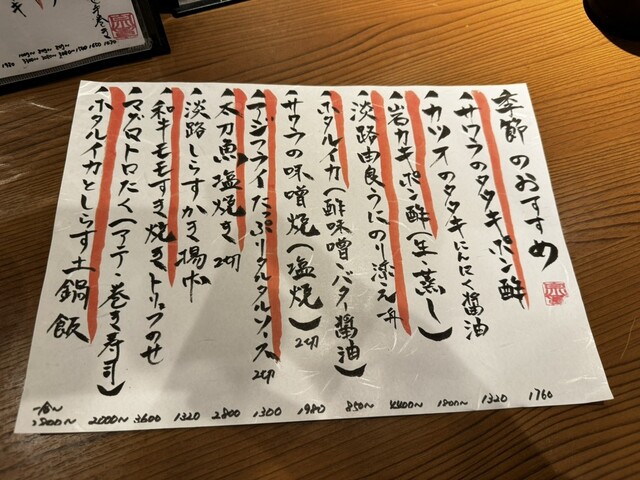 季節のおすすめ
サワラのタタキポン酢 1760
カツオのタタキにんにく醤油 1320
岩カキポン酢(生・蒸し) 1800~
淡路由良うにのり添え 舟 4400~
ホタルイカ(酢味噌・バター醤油) 850~
サワラの味噌焼(塩焼) 2切 1980
アジフライたっぷりタルタルソース 2切 1300
太刀魚塩焼き 2切 2800
淡路しらすかき揚げ 1320
和牛モモすき焼きトリュフのせ 3600
マグロトロたく(アテ・巻き寿司) 2000~
ホタルイカとしらす土鍋飯 一合~ 2800~